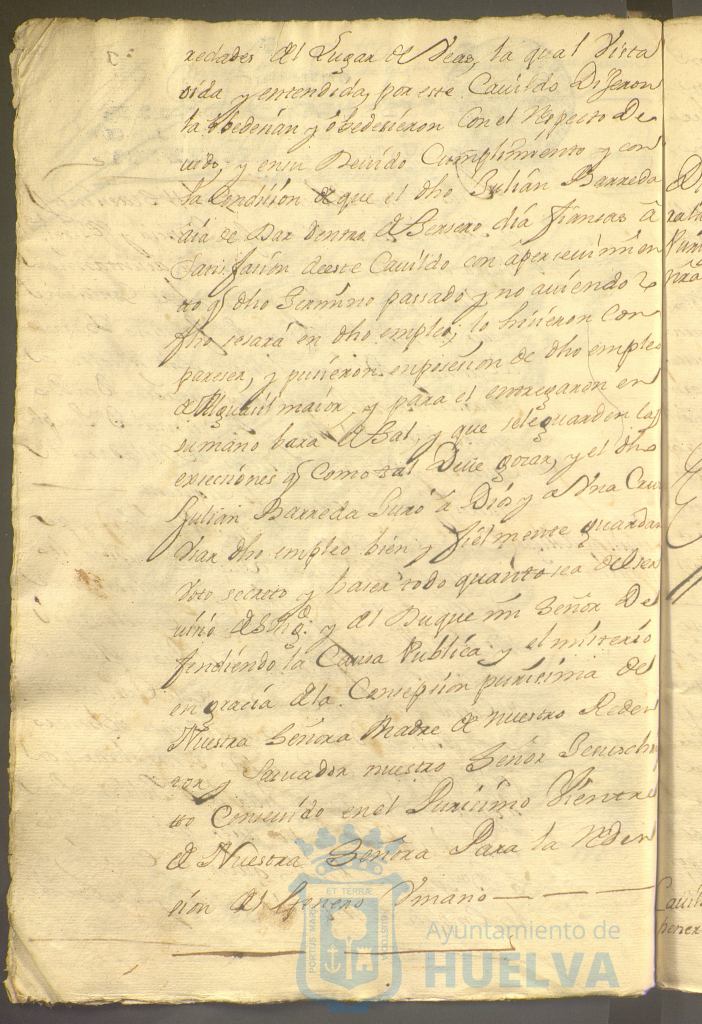 redades del Lugar de Veas, la qual Vista
oida y entendida por este Cavildo Dijeron
la Obedecian y obedesieron Con el Respecto De
vido, y en su Devido Cumplimiento y con
la Condision de que el dho Julian Barreda
aia de Dar dentro de tersero dia fiansas â
Satisfasion deeste Cavildo con apersevimien
to q dho termino passado y no aviendo
fho sesará en dho empleo; lo hisieron Con
pareser, y pusieron enposesion de dho empleo
de Alguasil maior, y para el entregaron en
sumano bara de tal, y que sele guarden las
execciones q Como tal Deve gozar, y el dho
Julian Barreda Juró á Dios y a Una Cruz
Usar dho empleo bien y fielmente guardar
Voto secreto y haser todo quanto sea del ser
vicio de y del Duque mi Señor De
fendiendo la Causa Publica; y el misterio
en gracia dela Consepsion purisima de
Nuestra Señora Madre de nuestro Reden
tor y Salvador nuestro Señor Jesuxpto
Consevido en el Purisimo Vientre
de Nuestra Señora Para la Reden
sion del Genero Umano
PORTUS MARIS ET TERRÆ CUSTODIA
Ayuntamiento de
HUELVA